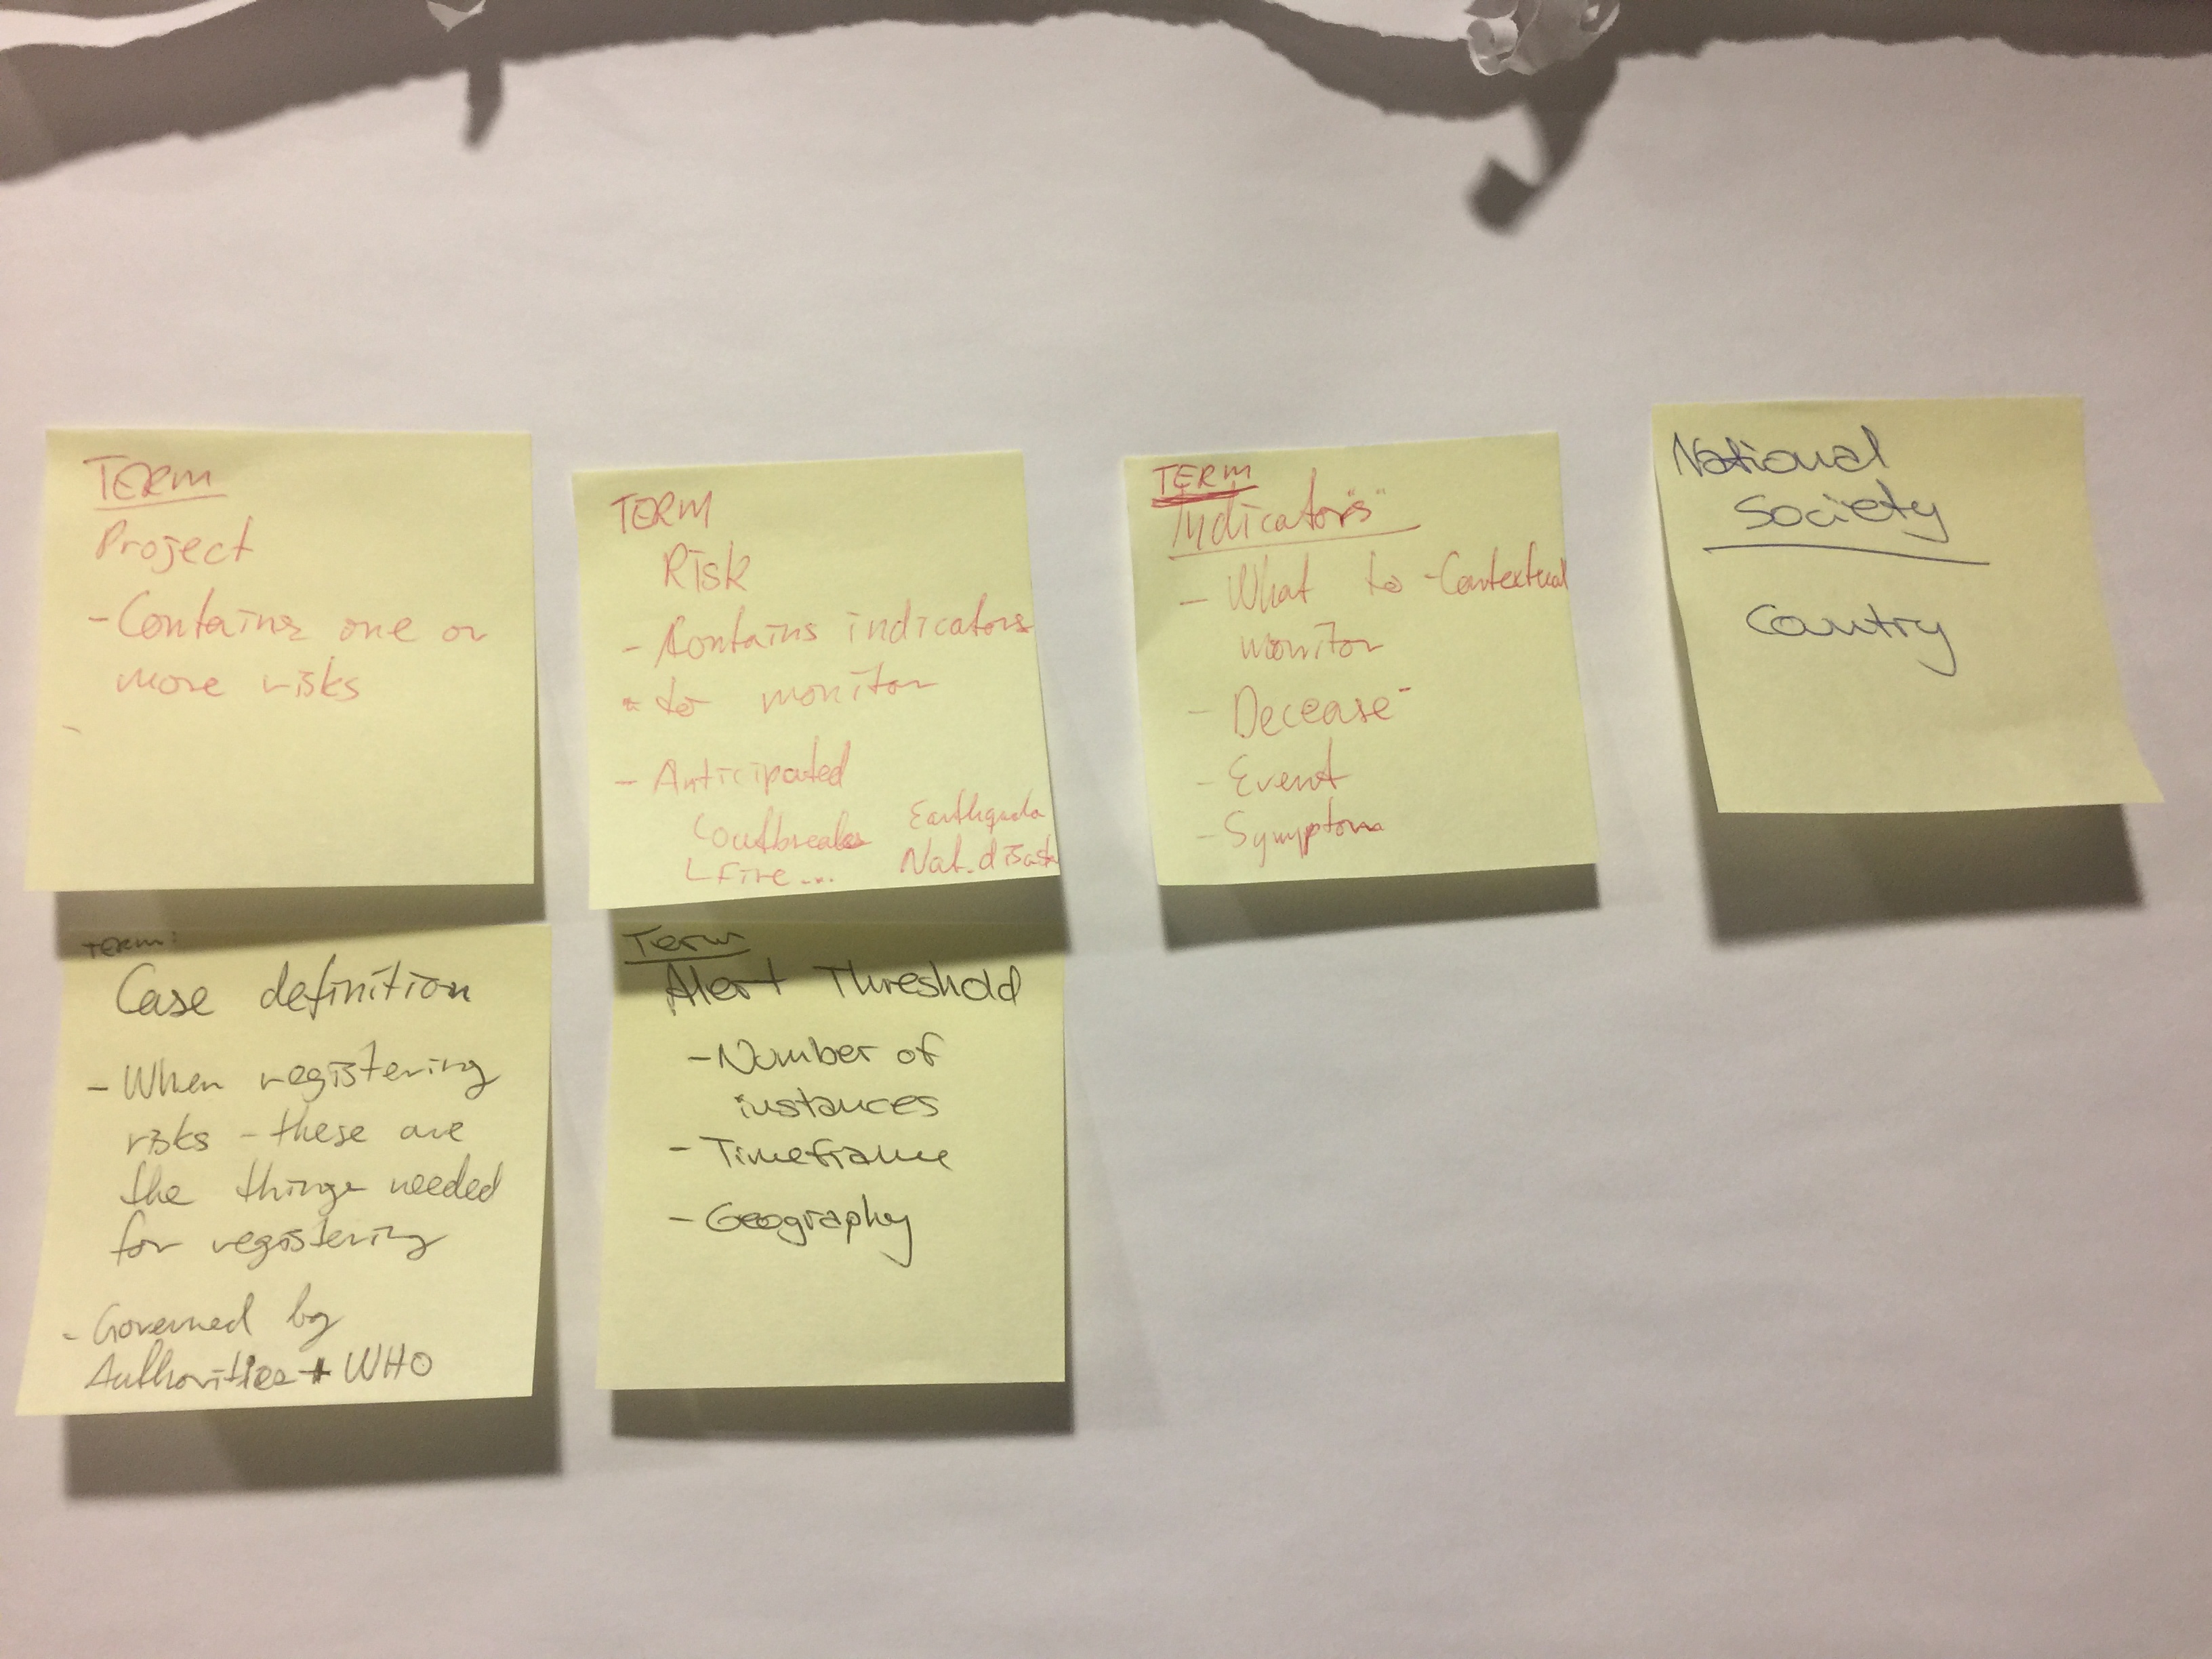 TERM
Project
- Contains one or
more risks
-
TERM
Risk
- Contains indicators
to monitor
- Anticipated
Loutbreaks
LFire...
Earthquake
Nat. disast
TERM
Indicators
- What to
monitor
- Contextual
- Decease
- Event
- Symptom
National
Society
Country
TERM:
Case definition
- When registering
risks - these are
the things needed
for registering
- Governed by
Authorities + WHO
Term
Alert Threshold
- Number of
instances
- Timeframe
- Geography